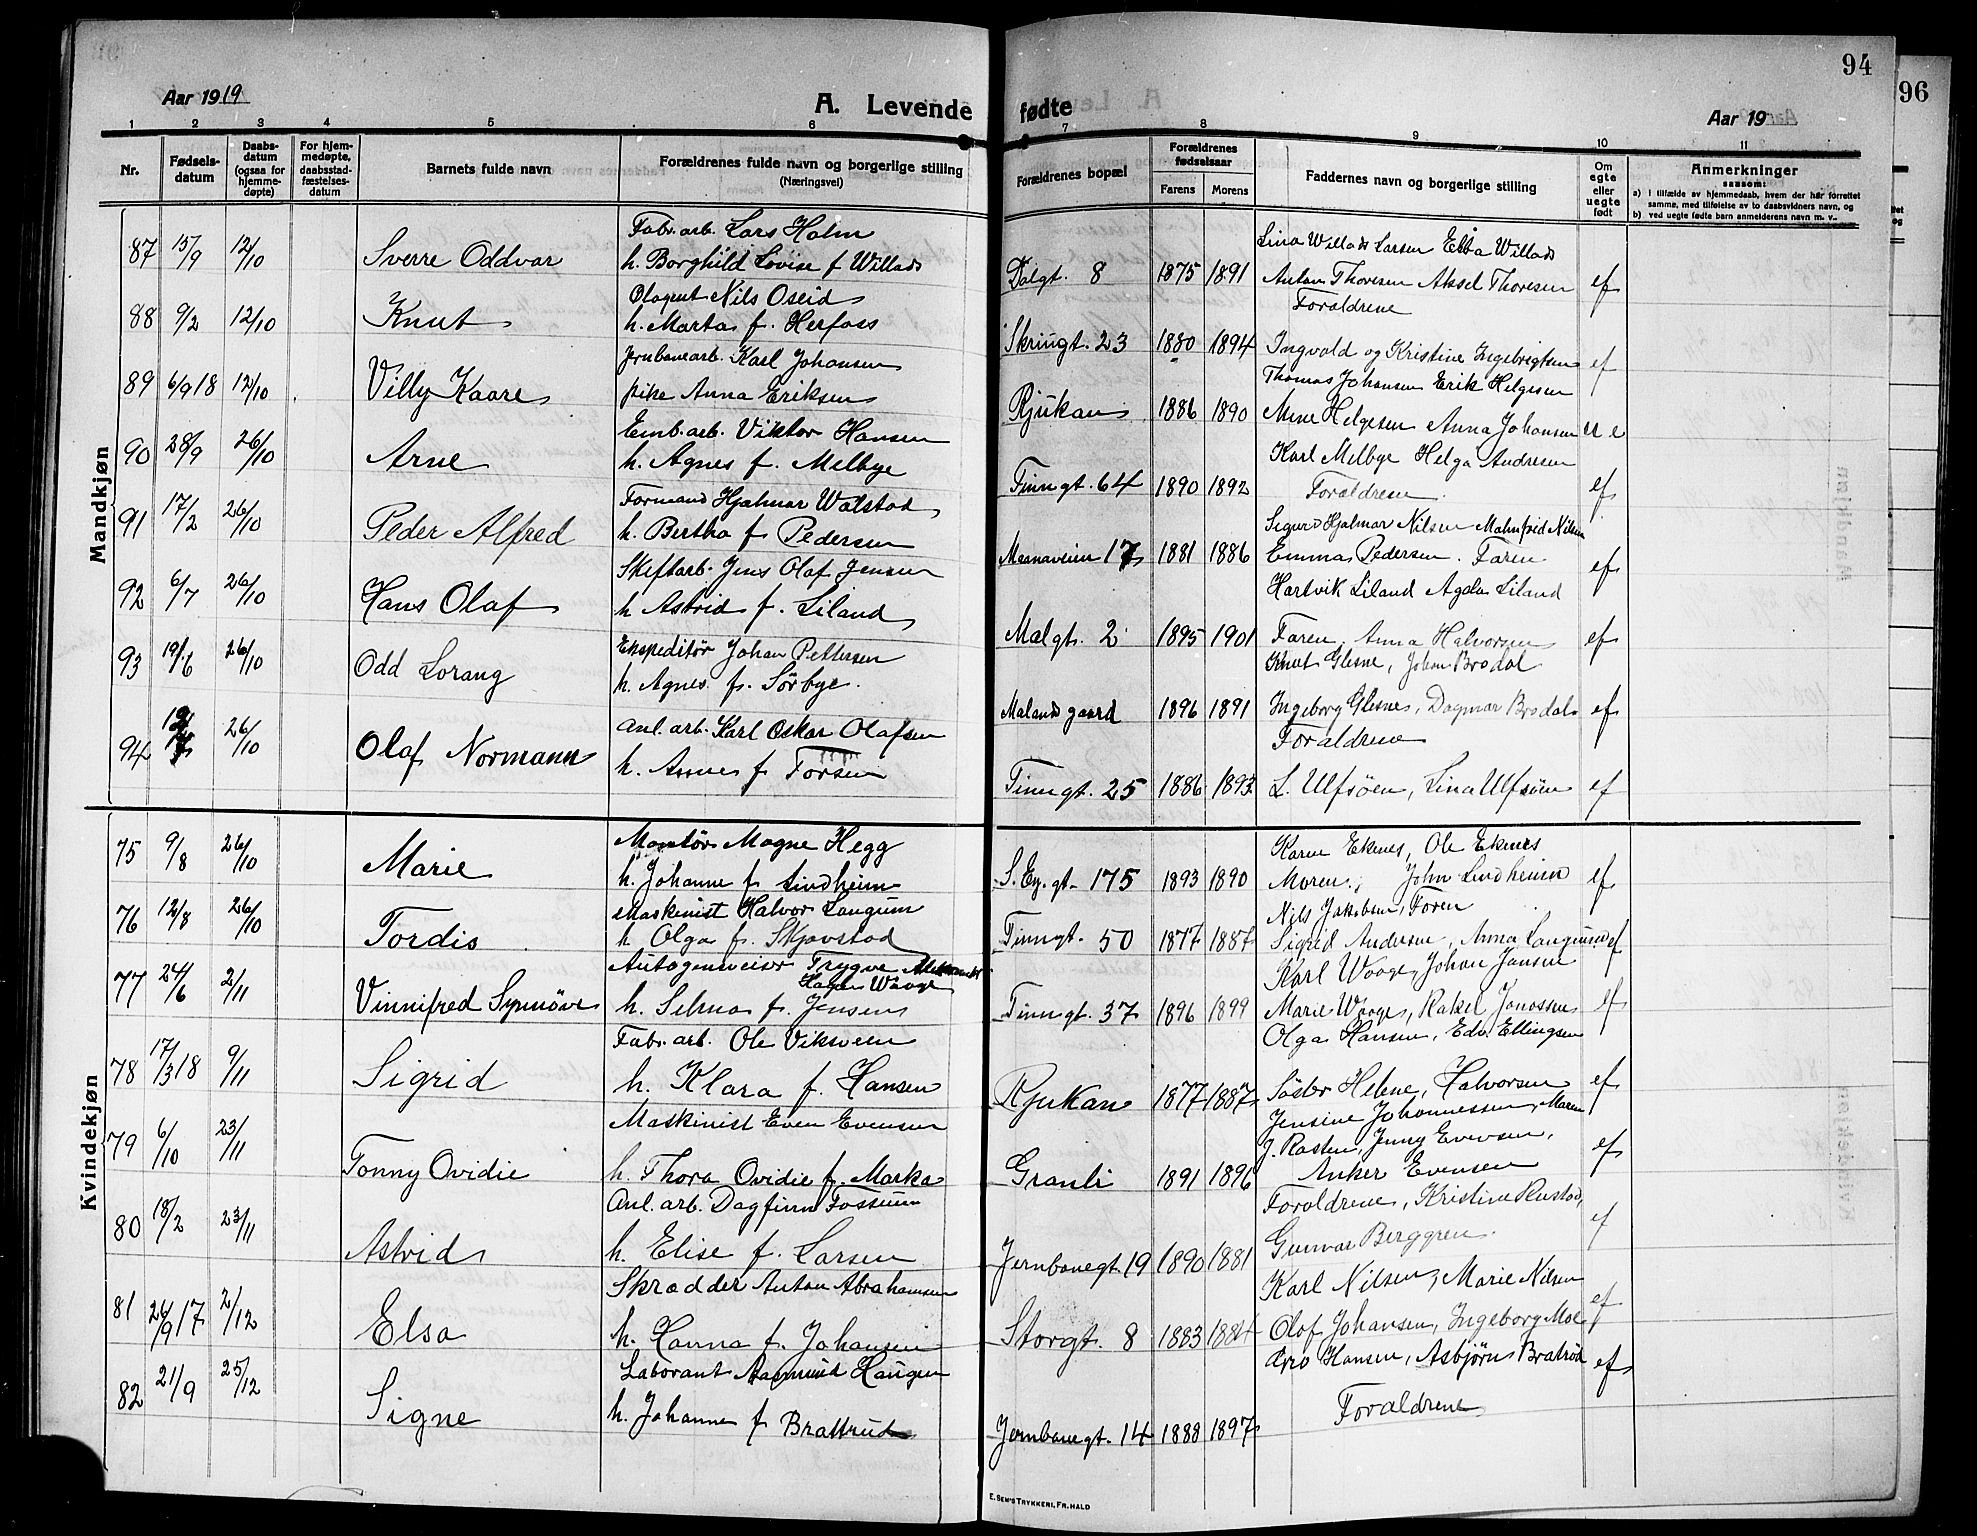 94
96
Aar 1919
A. Levende fødte
Aar 19
1 2 3 4 5 6 7 8 9 10 11
Nr.
Fødsels-
datum
Daabs-
datum
(ogsaa for
hjemme-
døpte)
For hjem-
medøpte,
daabsstad-
fæstelses-
datum
Barnets fulde navn
Forældrenes fulde navn og borgerlige stilling
(Næringsvei)
Forældrenes bopæl
Forældrenes
fødselsaar
Farens Morens
Faddernes navn og borgerlige stilling
Om
egte
eller
uegte
født
Anmerkninger
saasom:
a) i tilfælde av hjemmedaab, hvem der har forrettet
samme, med tilføielse av to daabsvidners navn, og
b) ved uegte fødte barn anmelderens navn m. v.
Mandkjøn
Fabr. arb. Lars Holm
Lina Willads Larsen Ebba Willads
87 15/9 12/10 Sverre Oddvar h. Borghild Lovise f Willads Dalgt. 8 1875 1891 Anton Thoresen Aksel Thoresen ef
Nils Oseid
Foraldrene
88 9/2 12/10 Knut h. Marta f. Herfoss Skriugt. 23 1880 1894 Ingvald og Kristine Ingebrigtsen ef
Jernbanearb. Karl Johansen
Thomas Johansen Erik Helgesen
89 6/9 18 12/10 Villy Kaare pike Anna Eriksen Rjukan 1886 1890 Anne Helgesen Anna Johansen u e
Emb. arb. Viktor Hansen
Karl Melbye Helga Andresen
90 28/9 26/10 Arne h. Agnes f. Melbye Tinngt. 64 1890 1892 Foraldrene ef
Formand Hjalmar Walstad
Sigurd Hjalmar Nilsen Malmfrid Nilsen
91 17/2 26/10 Peder Alfred h. Bertha f Pedersen Maanaveien 17 1881 1886 Emma Pedersen. Faren ef
Skiftarb. Jens Olaf Jensen
Hartvik Liland Agda Liland
92 6/7 26/10 Hans Olaf h Astrid f. Liland Malgt. 2 1895 1901 Faren, Anna Halvorsen ef
Ekspeditør Johan Pettersen
Knut Glesne, Johan Brodal
93 19/6 26/10 Odd Lorang h. Agnes f. Sörbye. Malandsgaard 1896 1891 Ingeborg Glesne, Dagmar Brodal ef
Anl. arb. Karl Oskar Olafsen
Foraldrene
94 26/10 Olaf Normann h. Anne f Forsen Tinngt. 25 1886 1893 L. Ulfsöen, Lina Ulfsöen ef
Kvindekjøn
Montör Magne Hegg
Karen Ekenes, Ole Ekenes
75 9/8 26/10 Marie h. Johanne f Lindheim S. Ey. gt. 175 1893 1890 Moren, John Lindheim ef
Maskinist Halvor Langum
Nils Jakobsen, Foren
76 12/8 26/10 Tordis h Olga f. Skjovstad Tinngt. 50 1877 1887 Sigrid Andersen, Anna Langum ef
Autogensveiser Trygve
Hagen Waage
Karl Waage, Johan Jansen
77 24/6 2/11 Vinnifred Synnöve h. Selma f. Jensen Tinngt. 37 1896 1899 Marie Waage, Rakel Jonassen ef
Fabr. arb. Ole Viksveen
Olga Hansen, Edv. Ellingsen
78 17/3 18 9/11 Sigrid h. Klara f. Hansen Rjukan 1877 1887 Söster Helene, Halvorsen ef
Maskinist Even Evensen
Jensine Johannessen, Maren
J. Rasten, Jenny Evensen,
79 6/10 23/11 Tonny Ovidie h. Thora Ovidie f. Marka Granli 1891 1896 Anker Evensen ef
Anl. arb. Dagfinn Fossum
Foraldrene, Kristine Rustad,
80 18/2 23/11 Astrid h. Elise f. Larsen Jernbanegt. 19 1890 1881 Gunvor Berggren. ef
Skrædder Anton Abrahamsen
Karl Nilsen, Marie Nilsen
81 26/9 17 2/12 Elsa h. Hanna f. Johansen Storgt. 8 1883 1884 Olaf Johansen, Ingeborg Moe ef
Laborant Aasmund Haugen
Hansen, Asbjörn Bratrud
82 21/9 25/12 Signe h. Johanne f Brattrud Jernbanegt. 14 1888 1897 Foraldrene ef
E. Sem's Trykkeri, Fr.hald